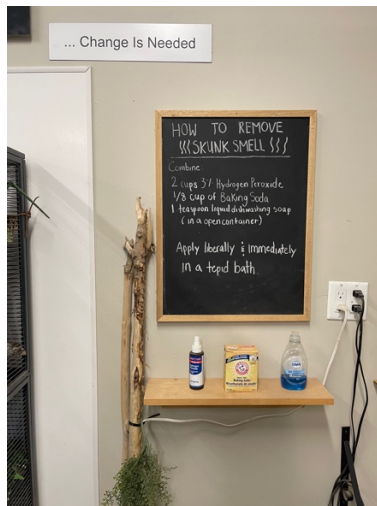 ... Change Is Needed
HOW TO REMOVE
SKUNK SMELL
Combine
2 cups 3% Hydrogen Peroxide
1/8 cup of Baking Soda
1 teaspoon liquid dishwashing soap
(in a open container)
Apply liberally & immediately
in a tepid bath
ARM & HAMMER
Baking Soda
Dawn